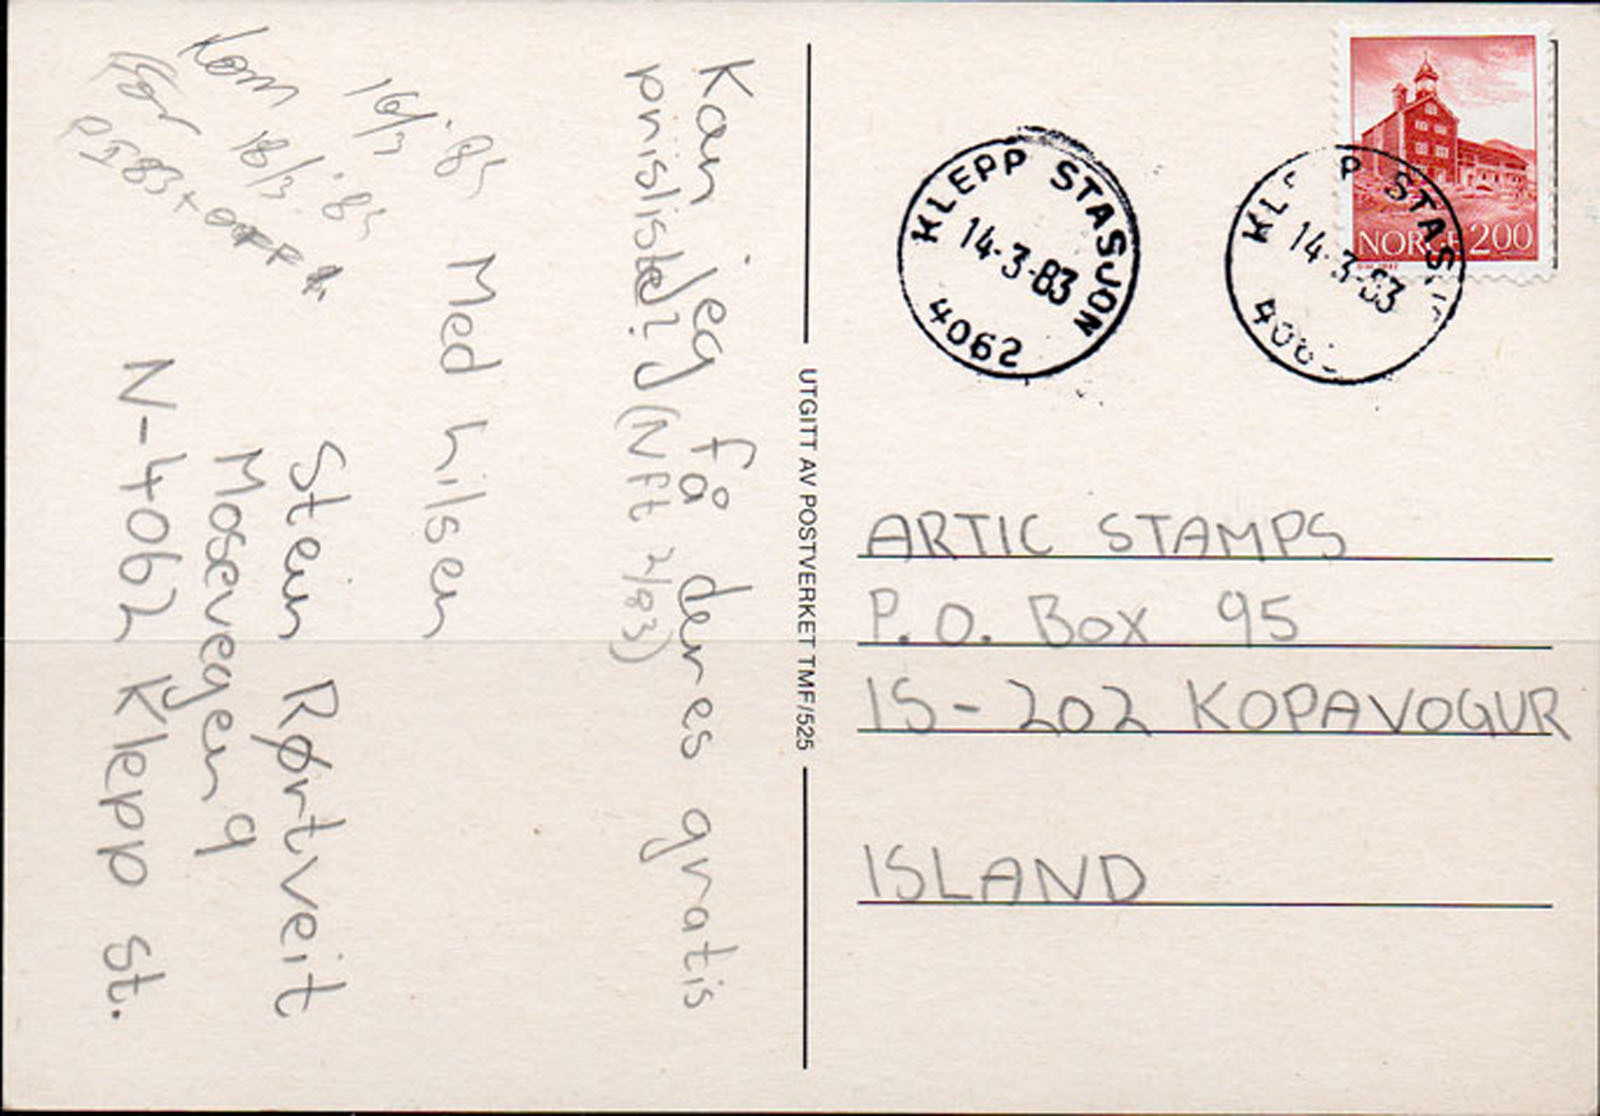 Kan Jeg få deres gratis
prisliste? (Nft 2/83)
Med hilsen
Stein Rørtveit
Mosevegen 9
N-4062 Klepp st.
Kom 16/3 '83
18/3 '83
UTGITT AV POSTVERKET TMF/525
KLEPP STASJON
14-3-83
4062
KL P STAS
14-3-83
NORGE 200
ARTIC STAMPS
P.O. Box 95
IS-202 KOPAVOGUR
ISLAND